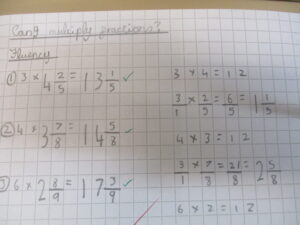 Can I multiply fractions?
Fluency
① 3 × 4 2/5 = 13 1/5 ✓
3 × 4 = 12
3/1 × 2/5 = 6/5 = 1 1/5
② 4 × 3 7/8 = 14 5/8 ✓
4 × 3 = 12
3/1 × 7/8 = 21/8 = 2 5/8
③ 6 × 2 8/9 = 17 3/9 ✓
6 × 2 = 12